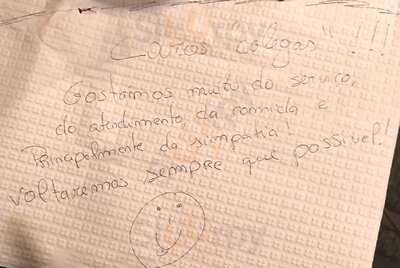 Caros "colegas" !!!
Gostamos muito do serviço,
do atendimento, da comida e
Principalmente da simpatia.
Voltaremos sempre que possível!